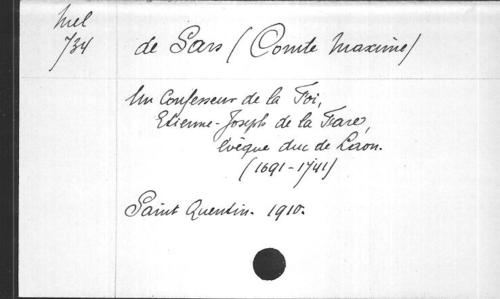 Mel
734
de Sars (Comte Maxime)
Un Confesseur de la Foi,
Etienne-Joseph de la Fare,
évêque duc de Laon.
(1691-1741)
Saint Quentin. 1910.